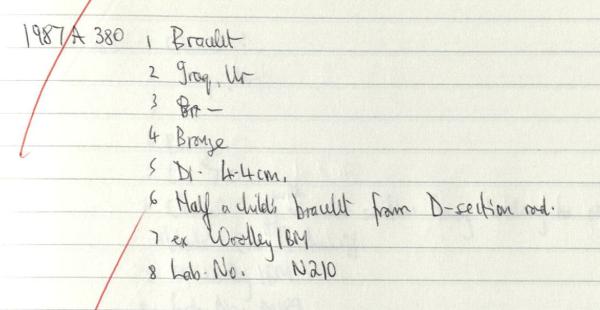 1987 A 380 1 Bracelet
2 Iraq, Ur
3 —
4 Bronze
5 Di. 4.4cm.
6 Half a child's bracelet from D-section rod.
7 ex Woolley/BM
8 Lab. No. N210